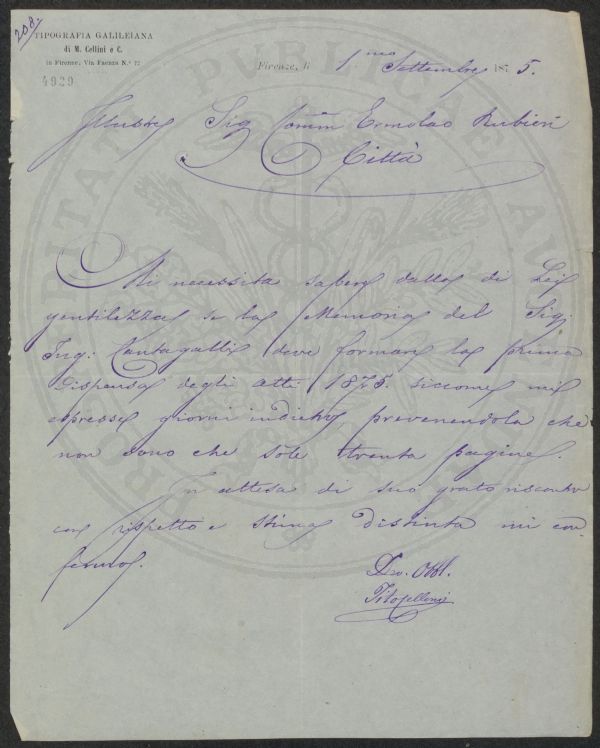 208.
TIPOGRAFIA GALILEIANA
di M. Cellini e C.
in Firenze, Via Faenza N.° 72
4929
Firenze, li 1.mo Settembre 1875.
Illustre Sig Comm Ermolao Rubieri
Città
Mi necessita sapere dalla di Lei
gentilezza se la Memoria del Sig:
Ing: Cantagalli deve formare la prima
dispensa degli atti 1875. siccome mi
espresse giorni indietro, prevenendola che
non sono che sole trenta pagine.
In attesa di suo grato riscontro
con rispetto e stima distinta mi con
fermo.
Dev. Obbl.
Tito Cellini